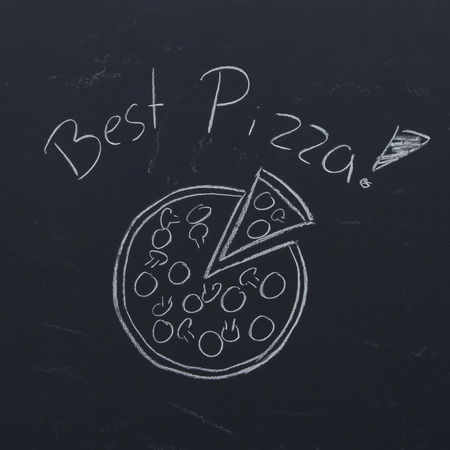 Best Pizza!